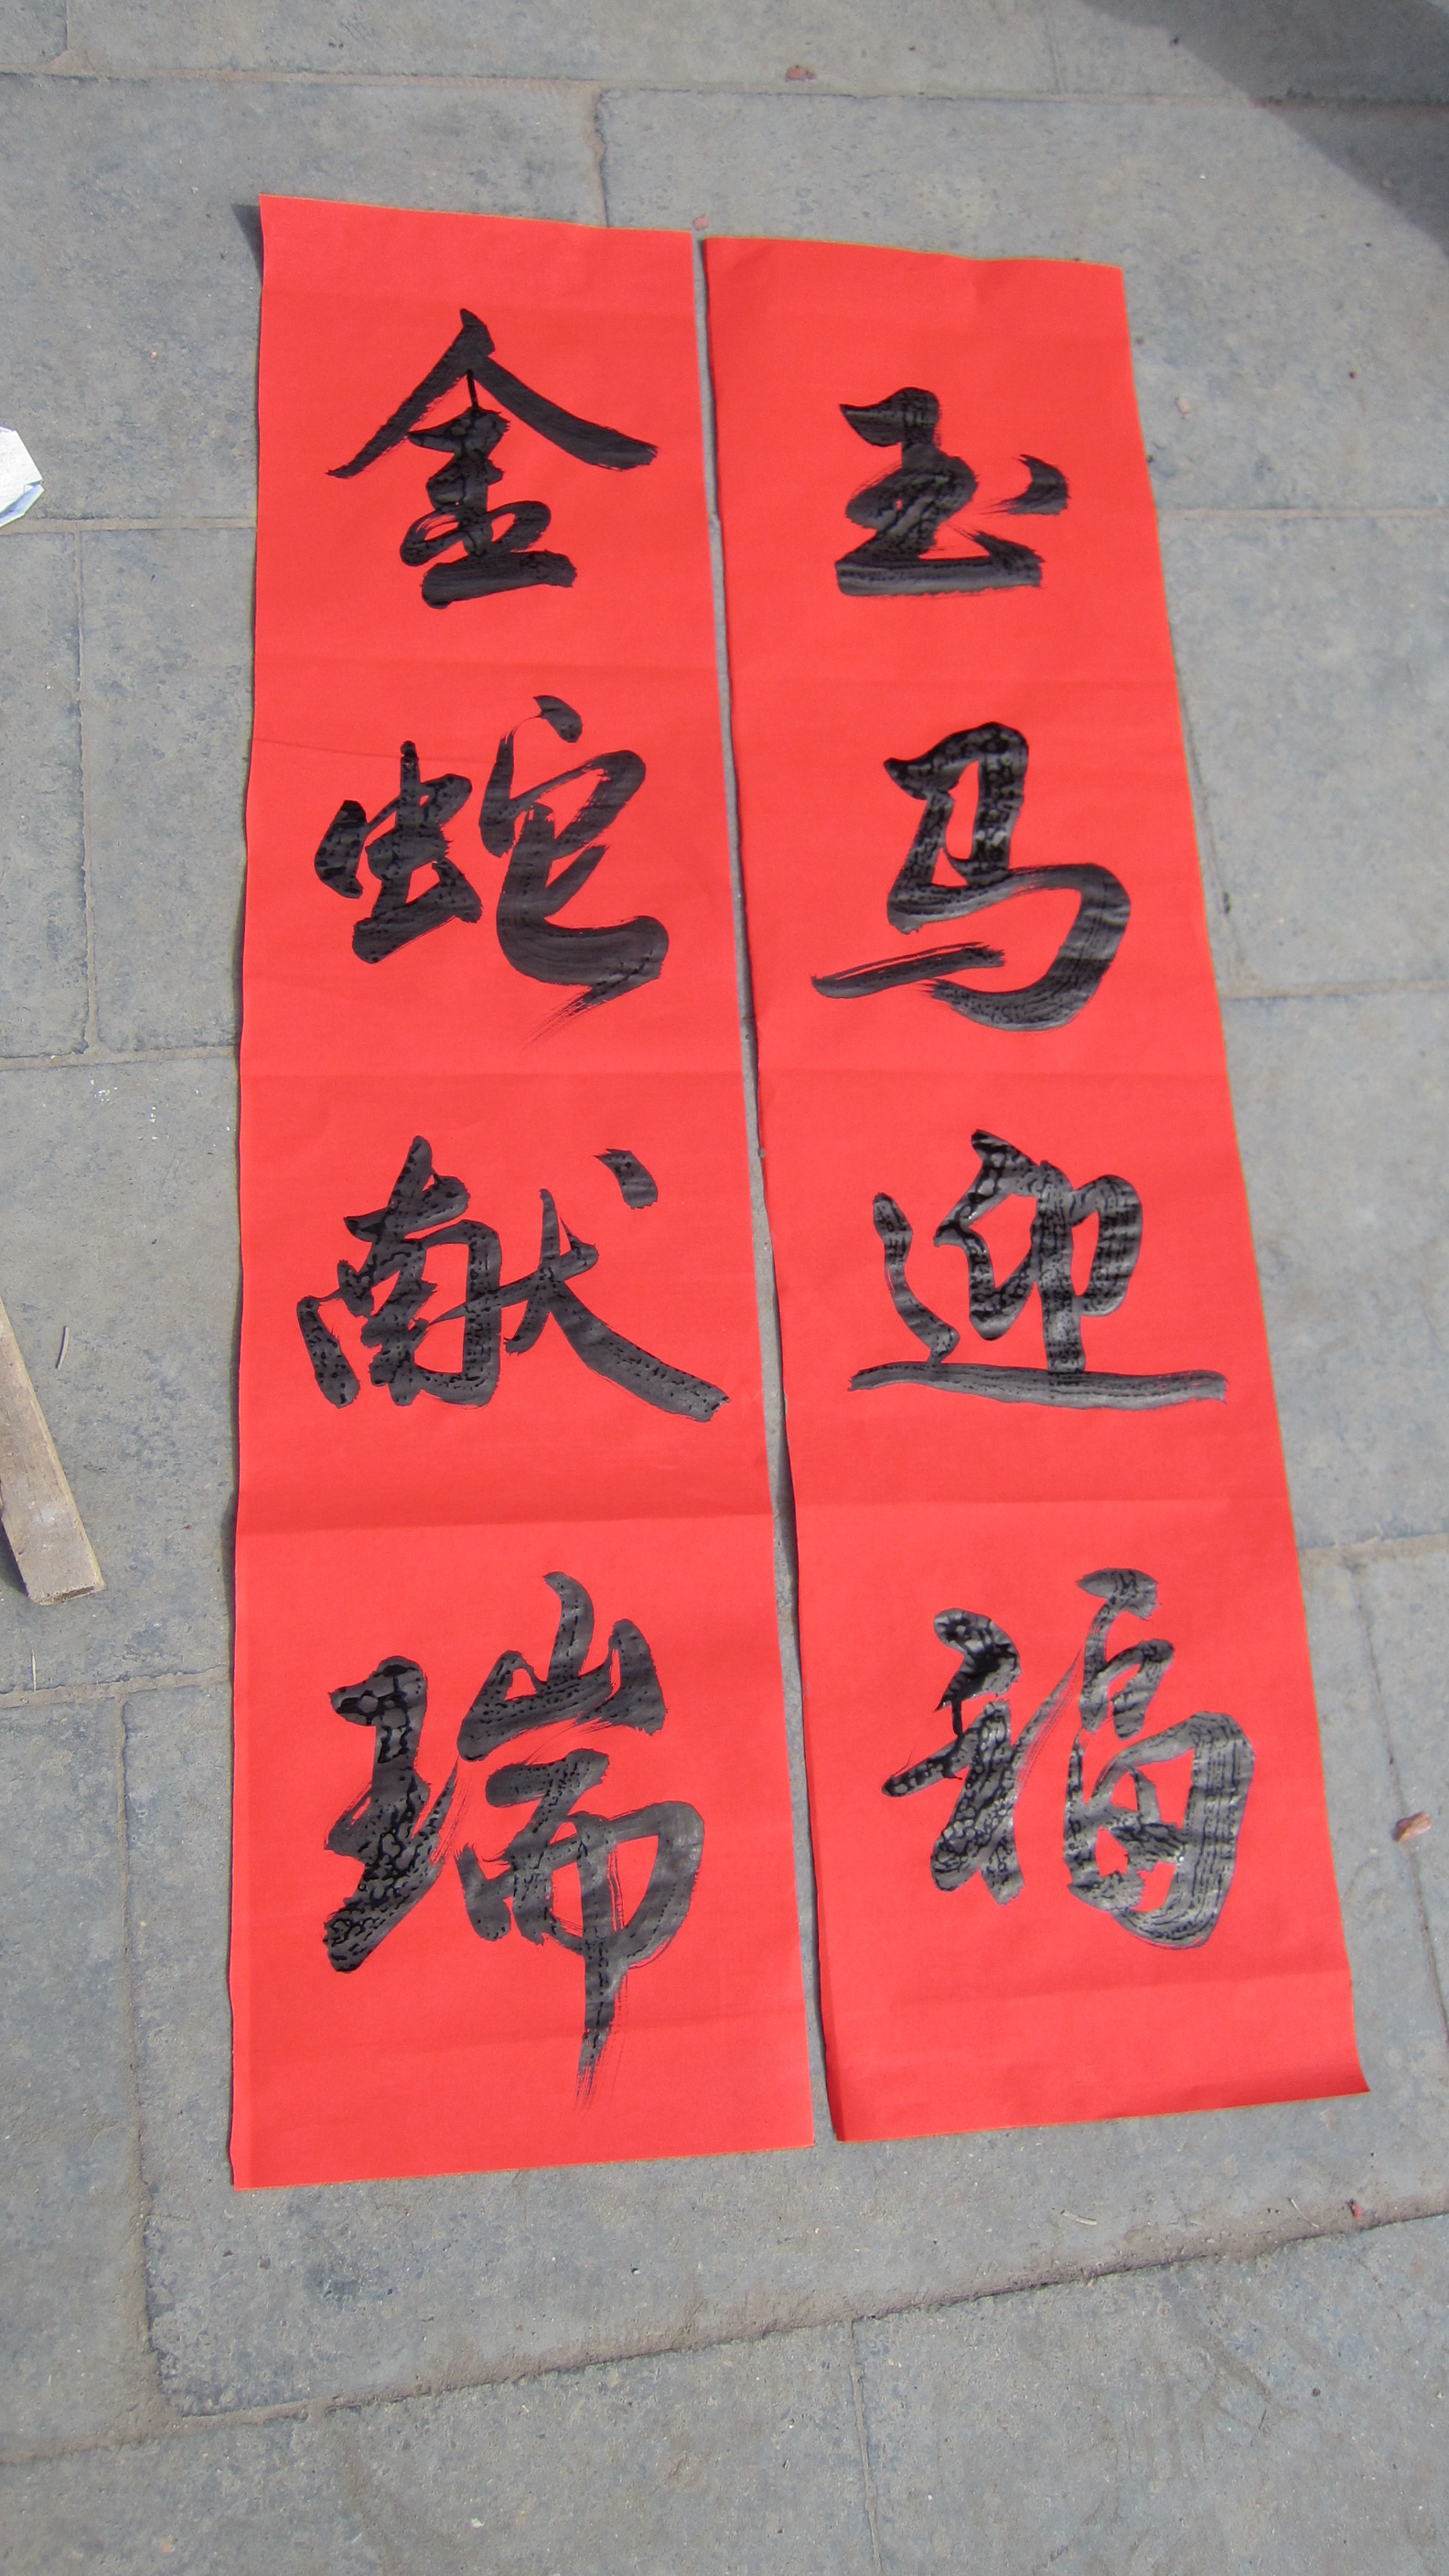 金蛇献瑞
玉马迎福